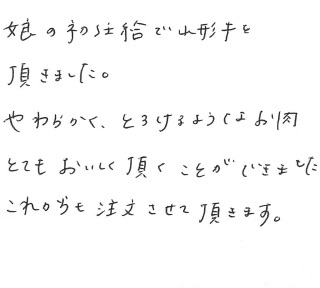 娘の初任給で山形牛を
頂きました。
やわらかく、とろけるようなお肉
とてもおいしく頂くことができました
これからも注文させて頂きます。